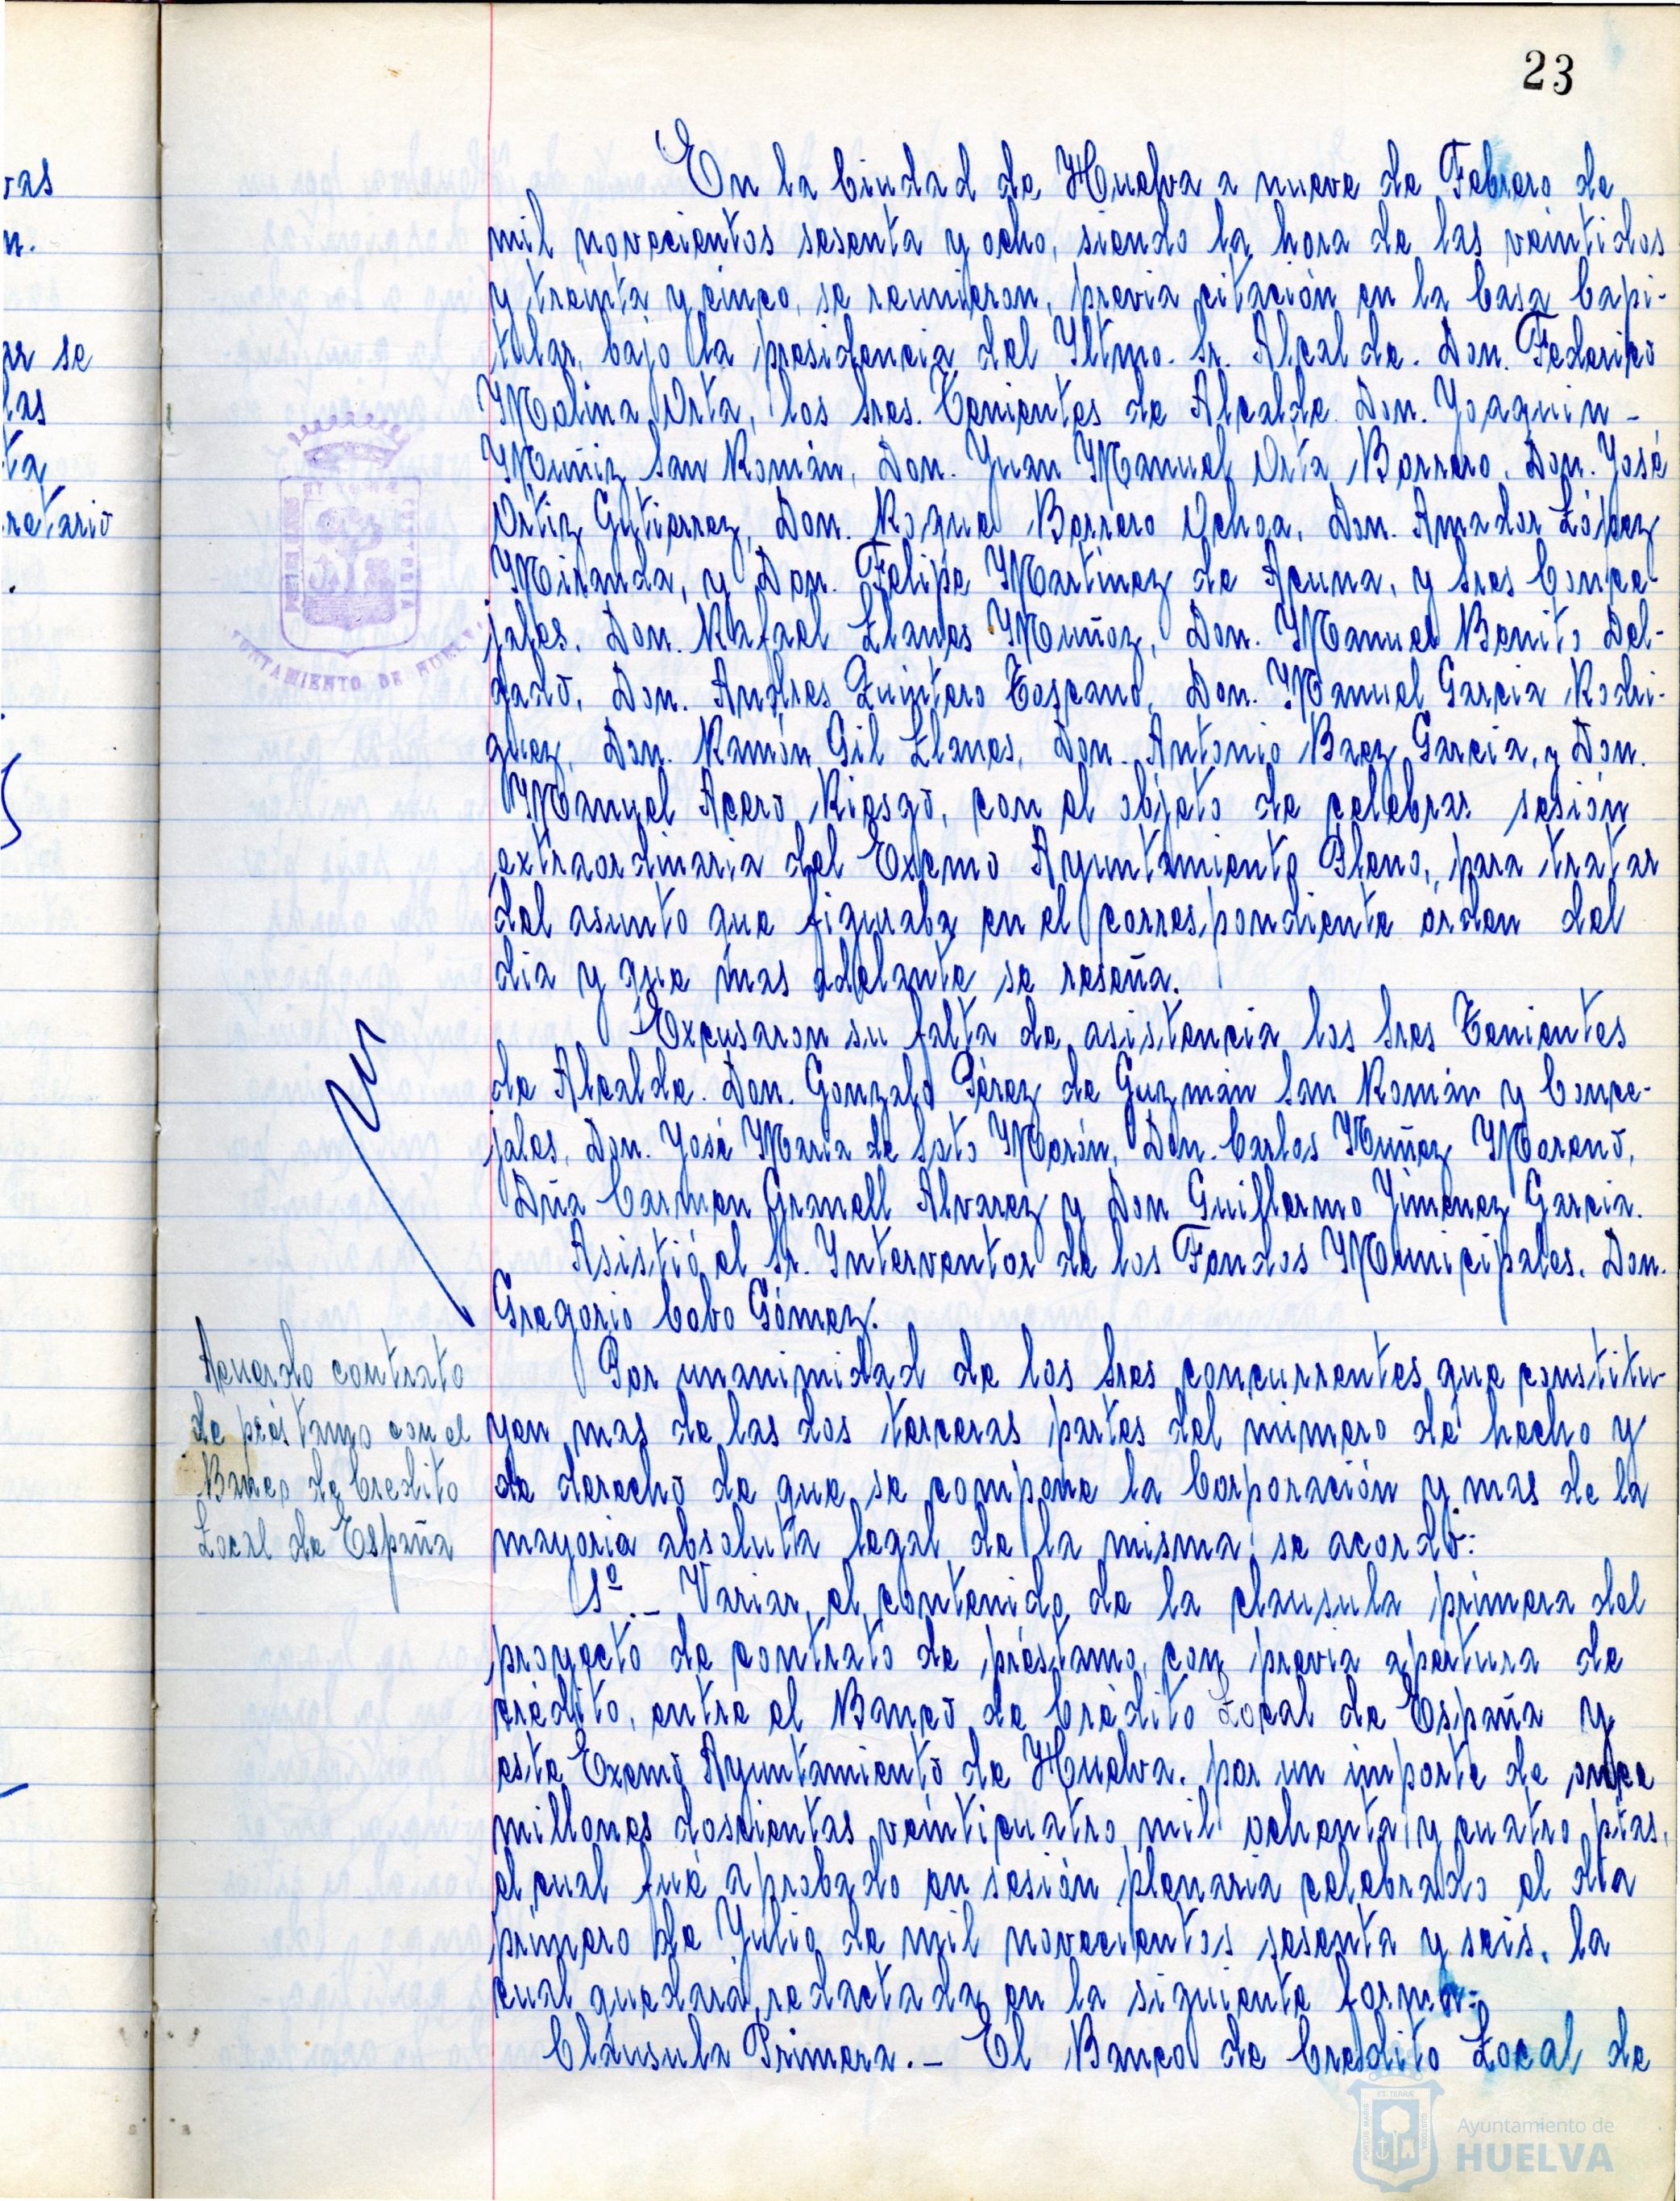 23
vas
n.
ar se
las
ta
retario
En la Ciudad de Huelva a nueve de Febrero de
mil novecientos sesenta y ocho, siendo la hora de las veintidos
y treinta y cinco, se reunieron, previa citación en la Casa Capi-
tular, bajo la presidencia del Yltmo. Sr. Alcalde. Don. Federico
Molina Orta, los Sres. Tenientes de Alcalde. Don. Yoaquin -
Muñiz San Román, Don. Yuan Manuel Orta Borrero, Don. Yosé
Ortiz Gutierrez, Don. Roque Borrero Ochoa, Don. Amador López
Miranda, y Don. Felipe Martinez de Acuna, y Sres Conce-
jales. Don. Rafael Llanes Muñoz, Don. Manuel Benito Del-
gado, Don. Andres Quintero Toscano, Don. Manuel Garcia Rodri-
guez, Don. Ramón Gil Llanes, Don. Antonio Baez Garcia, y Don.
Manuel Acero Riesgo, con el objeto de celebrar sesión
extraordinaria del Excmo Ayuntamiento Pleno, para tratar
del asunto que figuraba en el correspondiente orden del
dia y que mas adelante se reseña.
Excusaron su falta de asistencia los Sres Tenientes
de Alcalde. Don. Gonzalo Pérez de Guzmán San Román y Conce-
jales, Don. Yosé Maria de Soto Morón, Don. Carlos Muñoz Moreno,
Dña Carmen Granell Alvarez y Don Guillermo Yimenez Garcia.
Asistió el Sr. Ynterventor de los Fondos Municipales. Don.
Gregorio Cobo Gómez.
Acuerdo contrato
de préstamo con el
Banco de Credito
Local de España
Por unanimidad de los Sres concurrentes que constitu-
yen mas de las dos terceras partes del número de hecho y
de derecho de que se compone la Corporación y mas de la
mayoria absoluta legal de la misma; se acordó:
1º.- Variar el contenido de la clausula primera del
proyecto de contrato de préstamo, con previa apertura de
crédito, entre el Banco de Crédito Local de España y
este Excmo Ayuntamiento de Huelva. por un importe de once
millones doscientas veinticuatro mil ochenta y cuatro ptas,
el cual fué aprobado en sesión plenaria celebrado el dia
primero de Yulio de mil novecientos sesenta y seis, la
cual quedará redactada en la siguiente forma:
Cláusula Primera.- El Banco de Credito Local de
AYUNTAMIENTO DE HUELVA
Ayuntamiento de
HUELVA